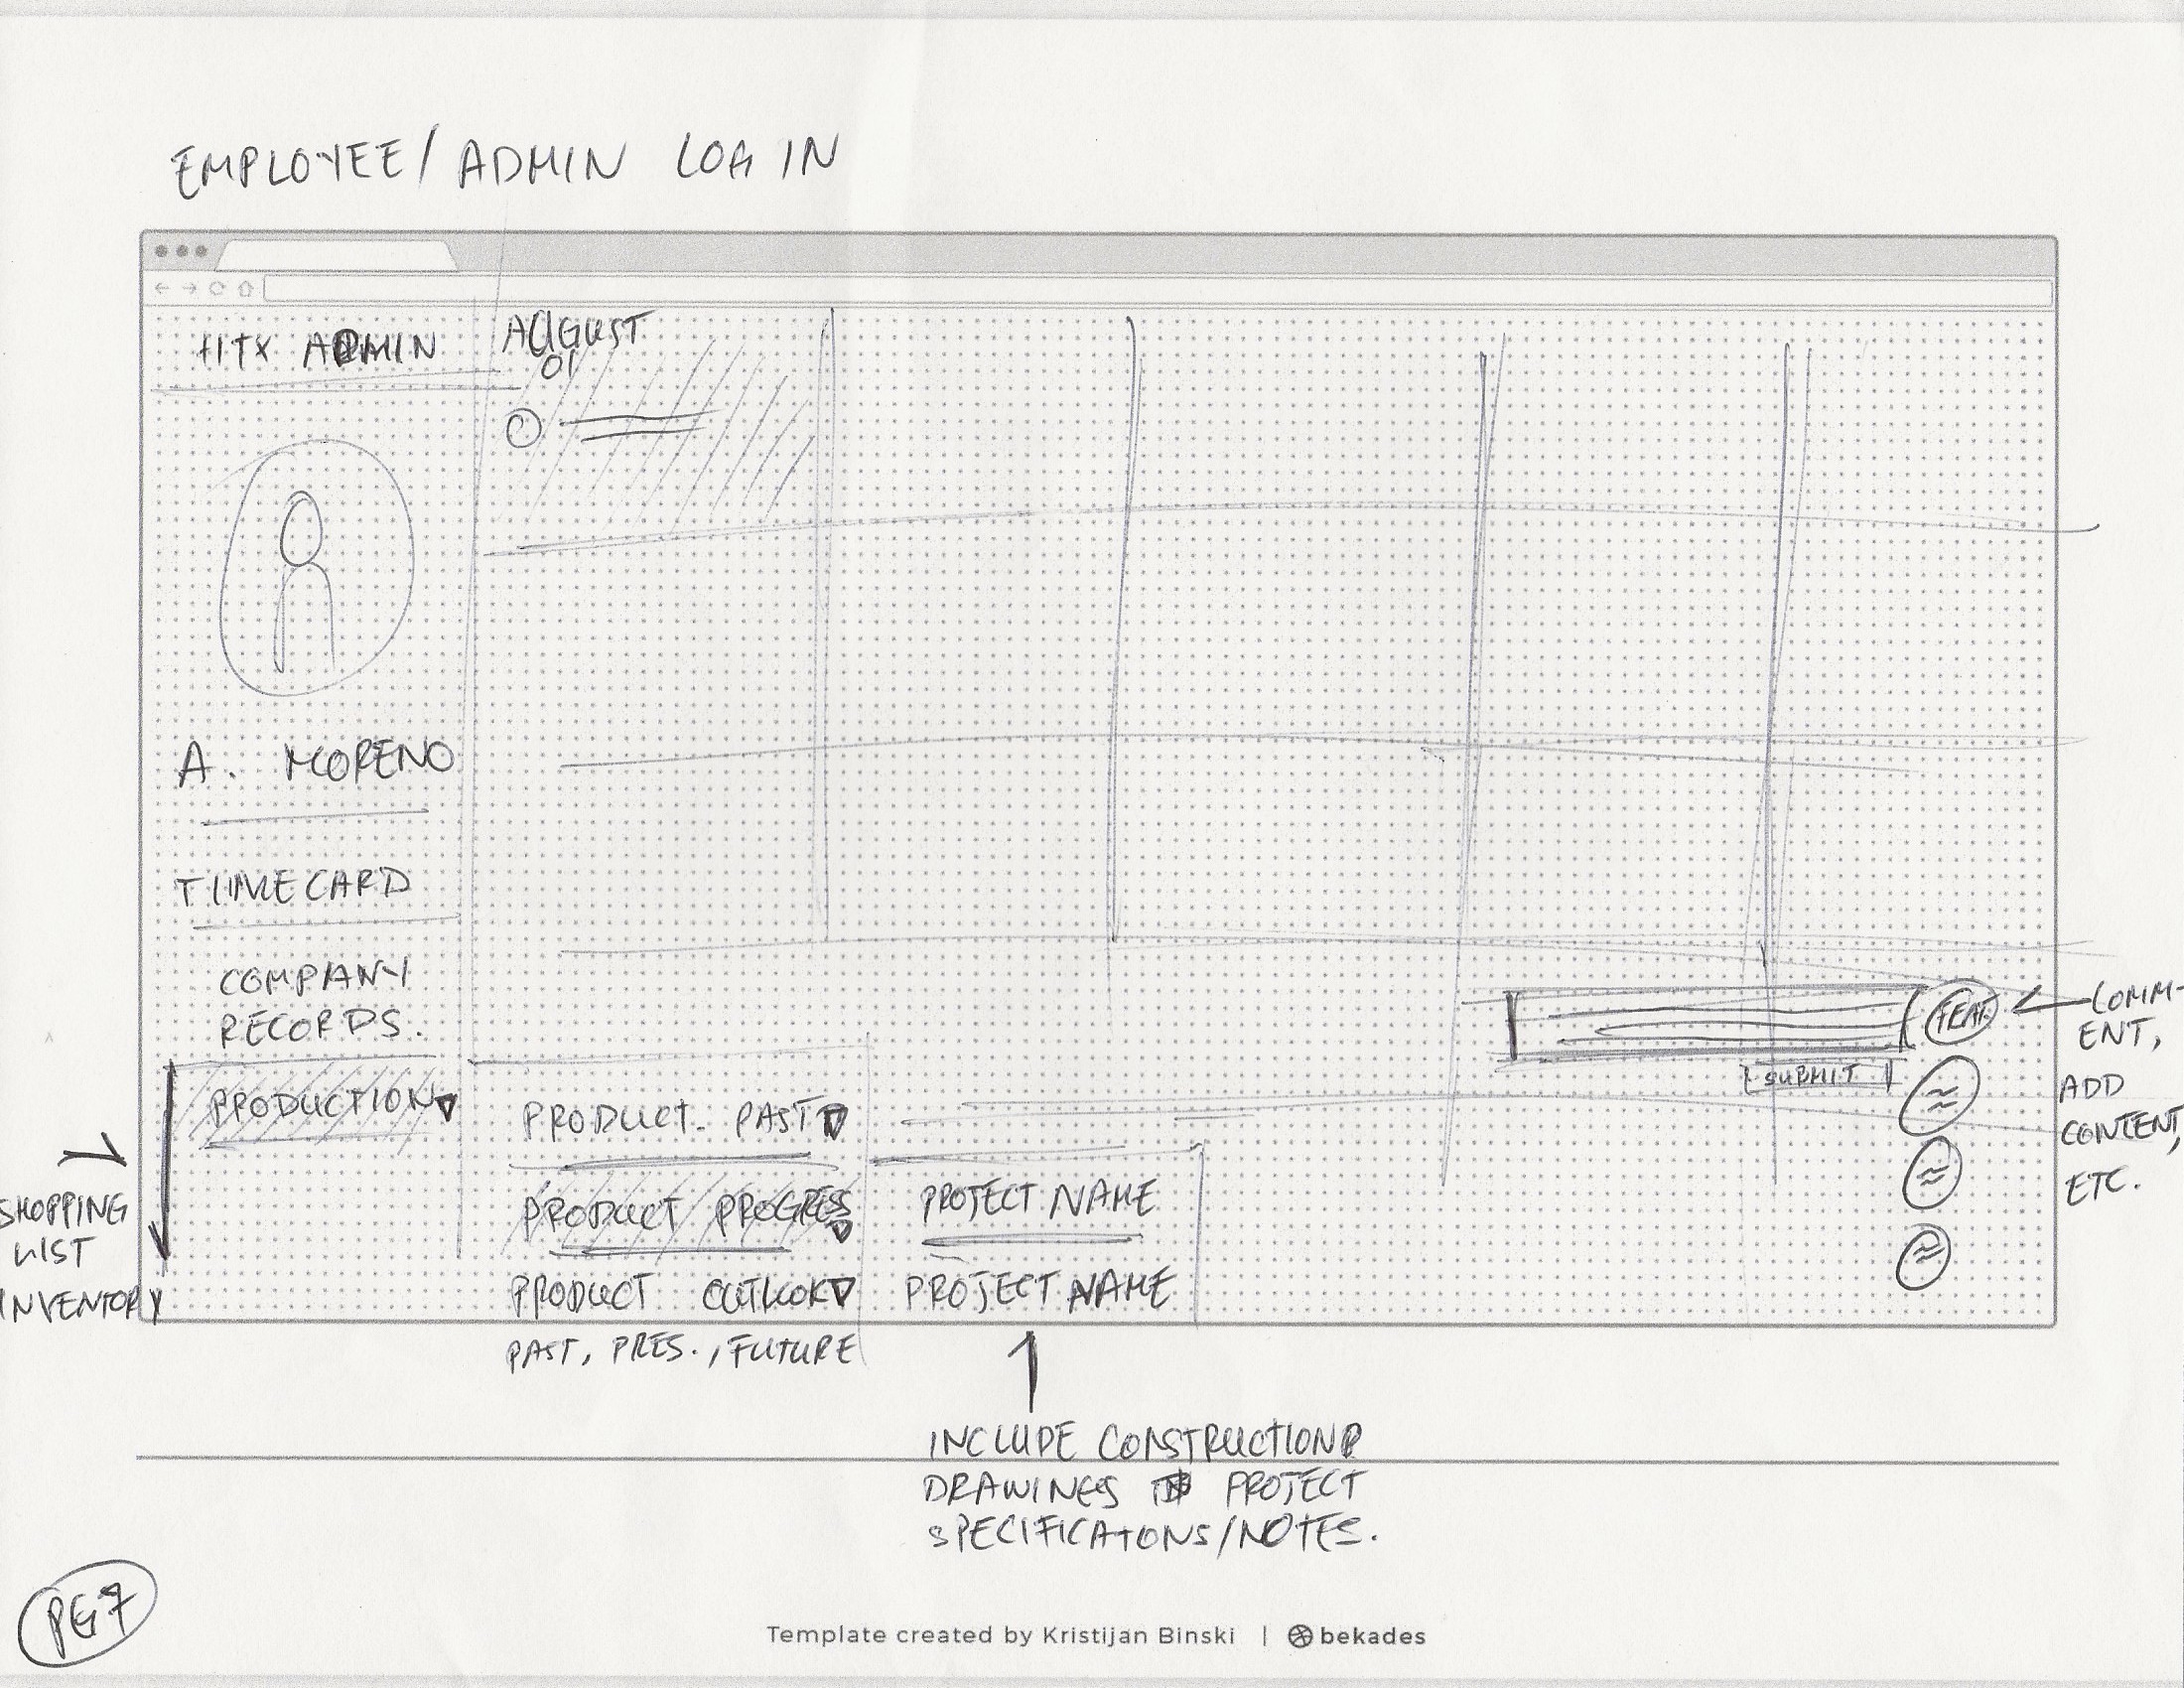 EMPLOYEE/ADMIN LOG IN
HTX ADMIN
AUGUST
01
A. MORENO
TIMECARD
COMPANY
RECORDS.
PRODUCTION
SHOPPING
LIST
INVENTORY
PRODUCT. PAST
PRODUCT PROGRESS
PRODUCT OUTLOOK
PAST, PRES., FUTURE
PROJECT NAME
PROJECT NAME
SUBMIT
COMM-
ENT,
ADD
CONTENT,
ETC.
INCLUDE CONSTRUCTION
DRAWINGS PROJECT
SPECIFICATONS/NOTES.
PG7
Template created by Kristijan Binski | bekades